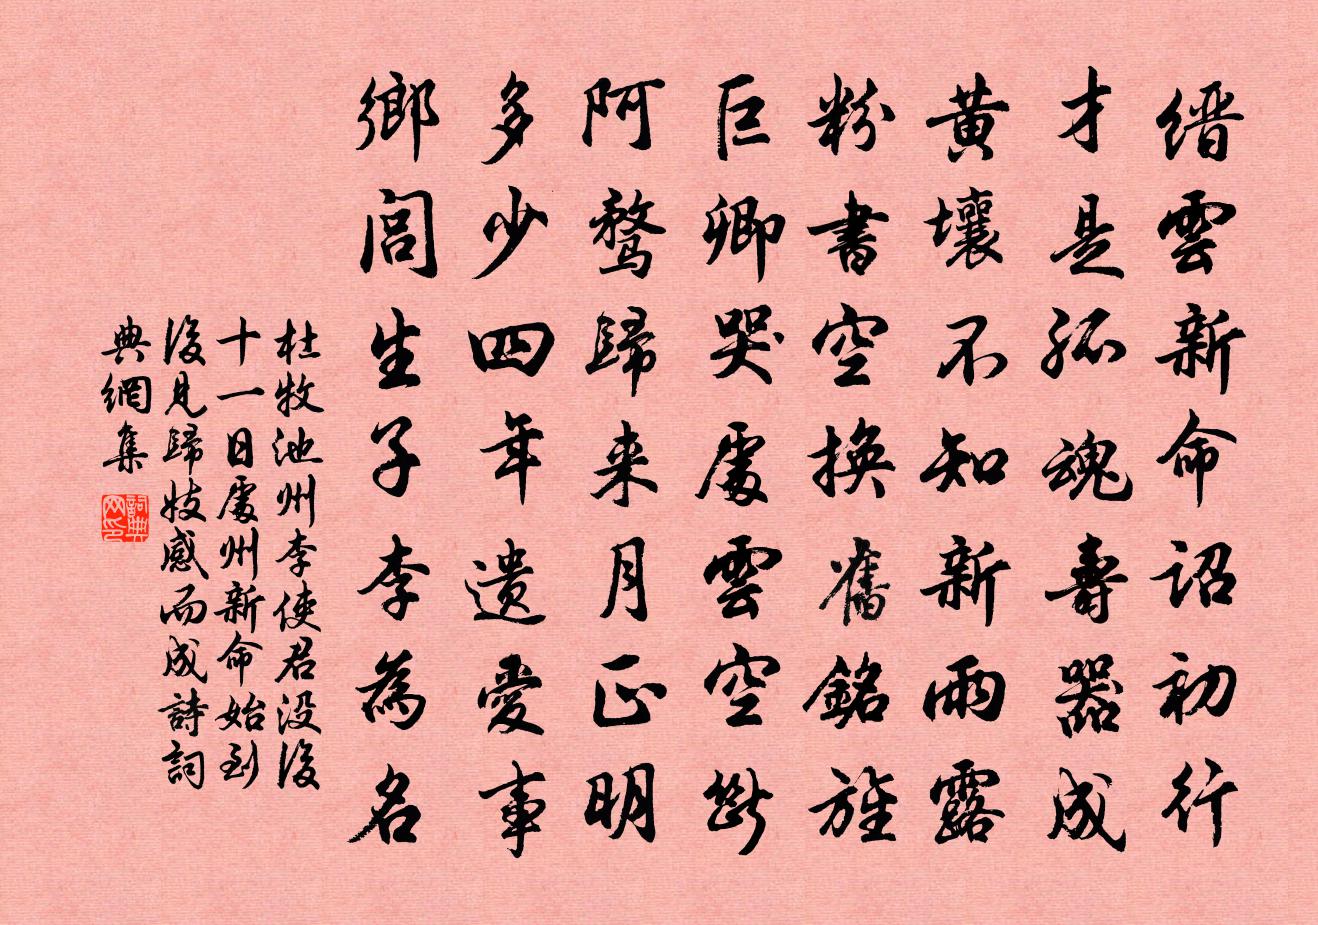 缙雲新命詔初行
才是孤魂壽器成
黄壤不知新雨露
粉書空換舊銘旌
巨卿哭處雲空斷
阿鹜歸来月正明
多少四年遗愛事
鄉閭生子李為名
杜牧池州李使君没後
十一日處州新命始到
後見歸妓感而成詩詞
典網集
詞典
网印